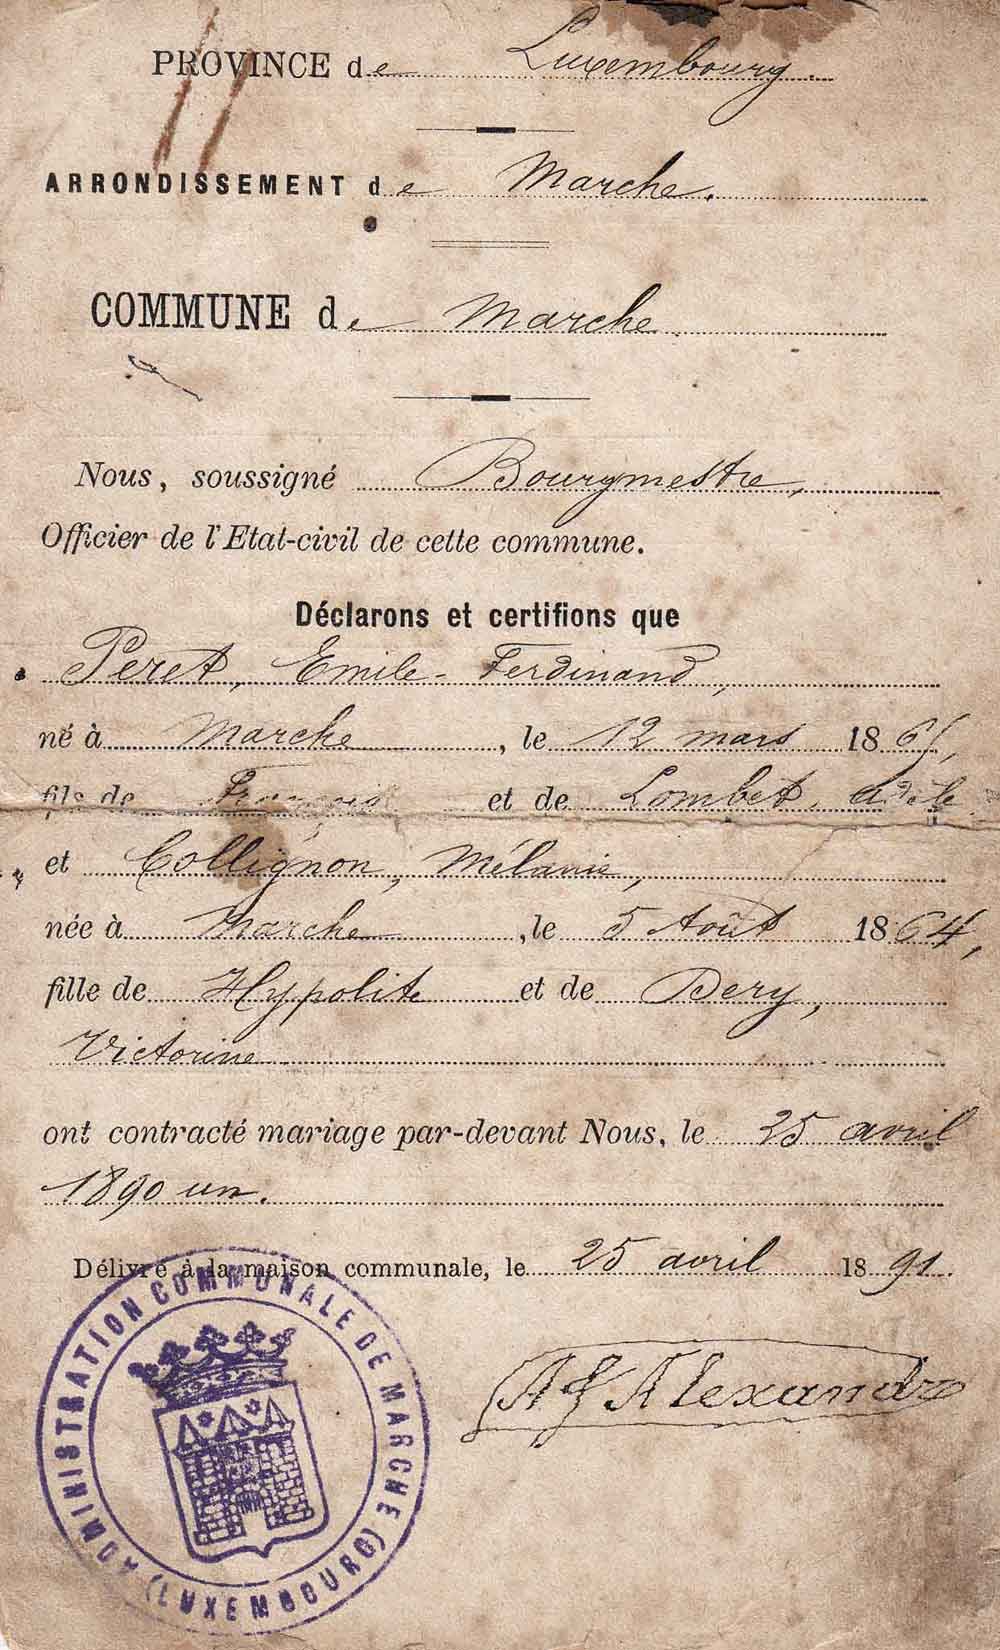 PROVINCE de Luxembourg.
ARRONDISSEMENT de Marche.
COMMUNE de Marche
Nous, soussigné Bourgmestre,
Officier de l'Etat-civil de cette commune.
Déclarons et certifions que
Peret, Emile-Ferdinand,
né à Marche, le 12 mars 186
fils de François et de Lombet, Adèle
et Collignon, Mélanie,
née à Marche, le 5 Août 1864,
fille de Hypolite et de Dery,
Victorine
ont contracté mariage par-devant Nous, le 25 avril
1890 un.
Délivré à la maison communale, le 25 avril 1891.
Alexandre
ADMINISTRATION COMMUNALE DE MARCHE
(LUXEMBOURG)